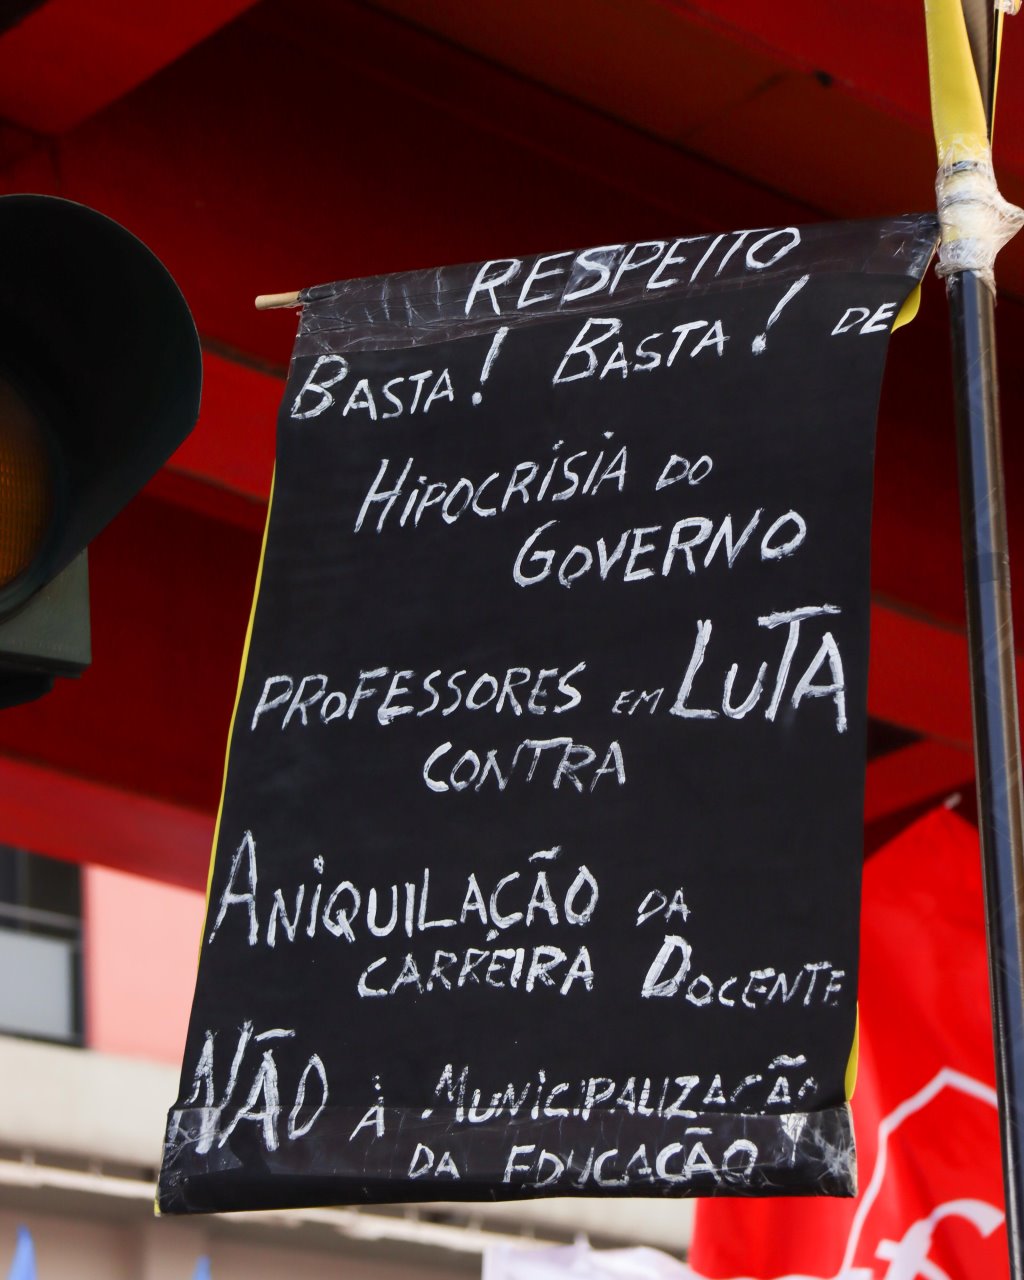 RESPEITO
BASTA! BASTA! DE
HiPOCRISiA DO
GOVERNO
PROFESSORES EM LUTA
CONTRA
ANiQUILAÇÃO DA
CARREIRA DOCENTE
NÃO À MUNICIPALIZAÇÃO
DA EDUCAÇÃO